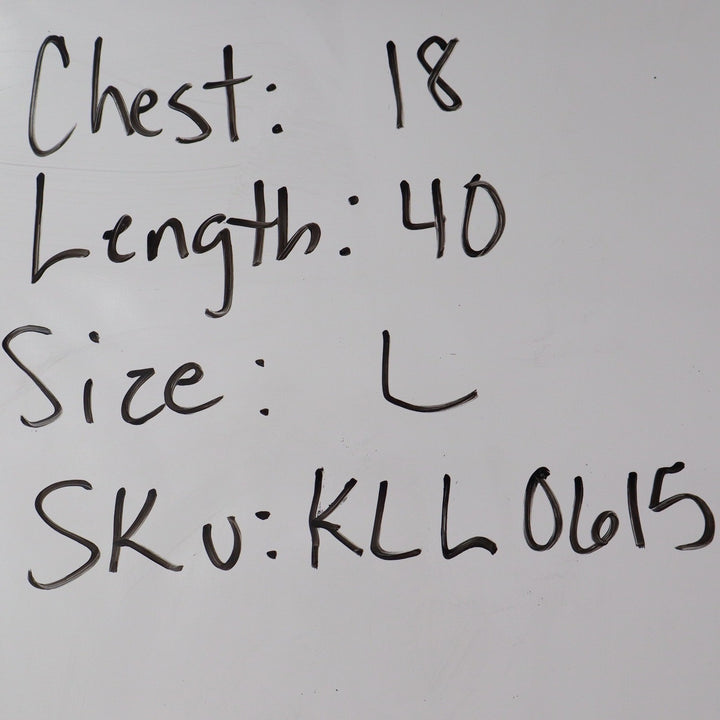 Chest: 18
Length: 40
Size: L
SKU: KLL0615